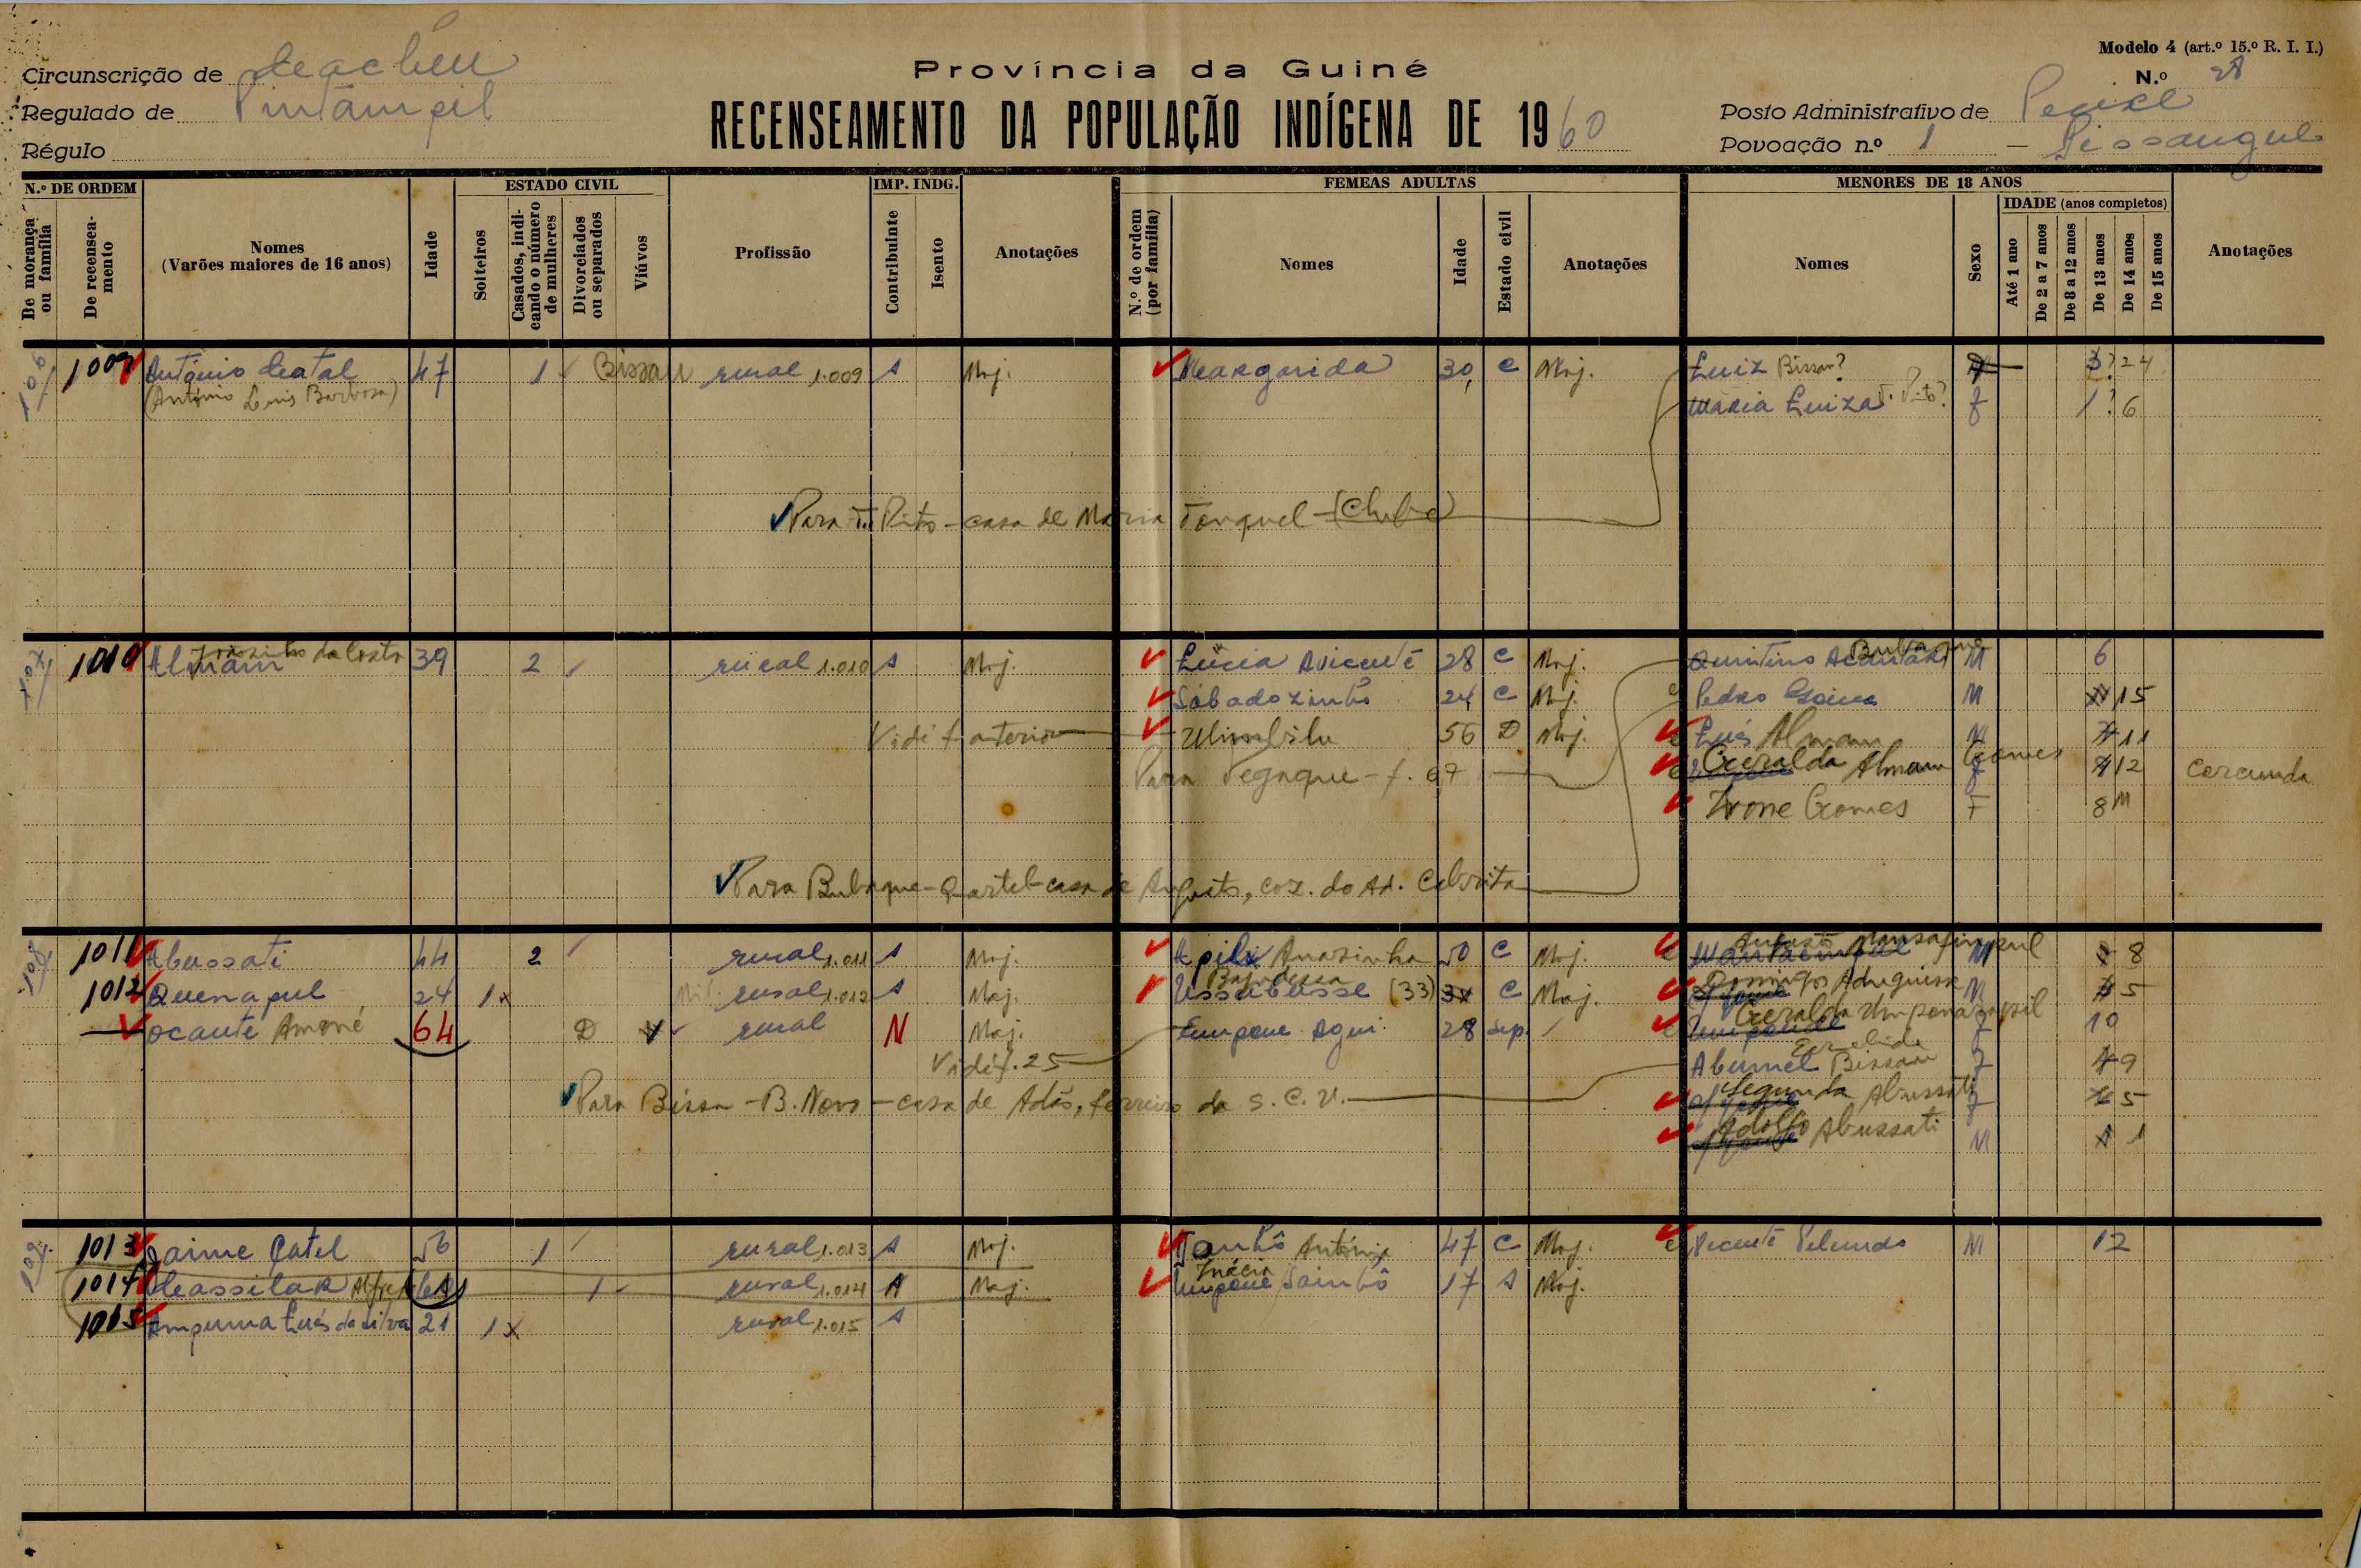 Modelo 4 (art.º 15.º R. I. I.)
Circunscrição de Cacheu
Província da Guiné
N.º 28
Regulado de Pintampil
RECENSEAMENTO DA POPULAÇÃO INDÍGENA DE 1960
Posto Administrativo de Pecixe
Régulo
Povoação n.º 1 — Bissangue
N.º DE ORDEM
De morança ou família
De recenseamento
Nomes
(Varões maiores de 16 anos)
Idade
ESTADO CIVIL
Solteiros
Casados, indicando o número de mulheres
Divorciados ou separados
Viúvos
Profissão
IMP. INDG.
Contribuinte
Isento
Anotações
FEMEAS ADULTAS
N.º de ordem (por família)
Nomes
Idade
Estado civil
Anotações
MENORES DE 18 ANOS
Nomes
Sexo
IDADE (anos completos)
Até 1 ano
De 2 a 7 anos
De 8 a 12 anos
De 13 anos
De 14 anos
De 15 anos
Anotações
106 1009 António Catal 47 1 Bissau rural 1.009 s Maj. Margarida 30 c Maj. Luiz Bissau? 3? 24
(António Luis Barbosa) Maria Luiza T. Pinto? f 1? 6
Para T. Pinto - casa de Maria Tonquel - (Cluba)
107 1010 Almam Joãzinho da Costa 39 2 rural 1.010 s Maj. Lúcia Avicenté 28 c Maj. Quintino Bubaque M 6
Sábadozinho 24 c Maj. Pedro M 15
Vidé f. anterior Ulimbilu 56 D Maj. Luís Almam M 11
Para Pegaque - f. 67 Geralda Almam Gomes f 12 Corcunda
Ivone Gomes F 8 M
Para Bubaque - Quartel - casa de Augusto, coz. do Ad. Cabrita
108 1011 Abussati 44 2 rural 1.011 s Maj. Apili Anasinha 50 c Maj. Augusto M 8
1012 Quenapul 24 1x rural 1.012 s Maj. Ussubusse (33) c Maj. Domingos Aduguisse M 5
Ocante Amoné 64 D V rural N Maj. Empene Agui 28 sep. Geralda f 10
Vidé f. 25 Abumel Bissau f 9
Para Bissau - B. Novo - casa de Adão, ferreiro da S. C. U. Segunda Abussati f 5
Adolfo Abussati M 1
109 1013 Jaime Catel 56 1 rural 1.013 s Maj. Tonhô António 47 c Maj. Vicente M 12
1014 1 rural 1.014 N Maj. Inácia Sainhô 17 s Maj.
1015 Ampuma Luís da Silva 21 1x rural 1.015 s